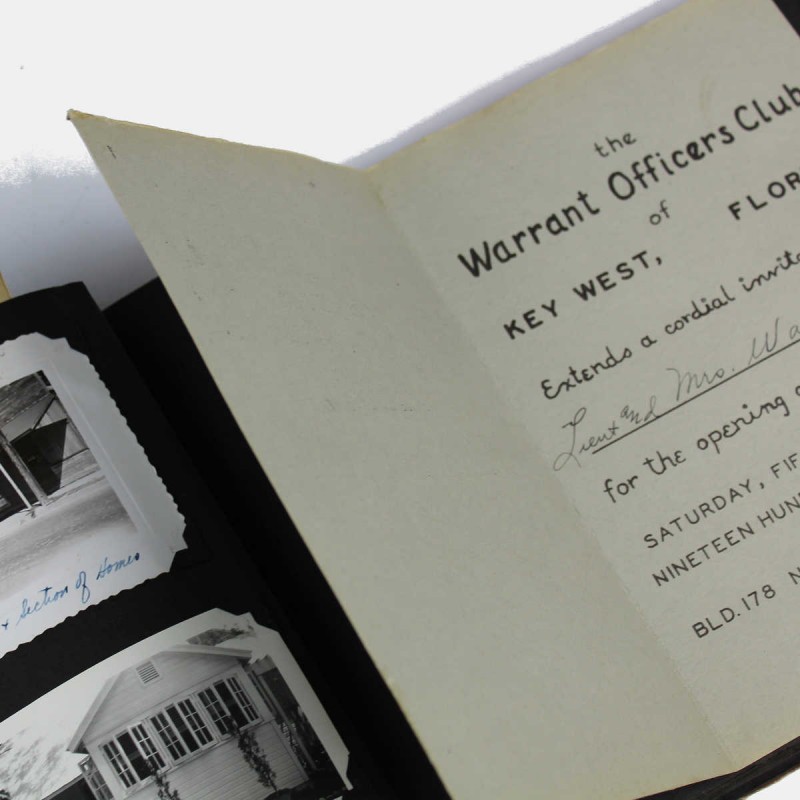 the
Warrant Officers Club
of
KEY WEST, FLOR
Extends a cordial invita
Lieut and Mrs. Wa
for the opening
SATURDAY, FIF
NINETEEN HUN
BLD. 178 N
+ Section of Homes